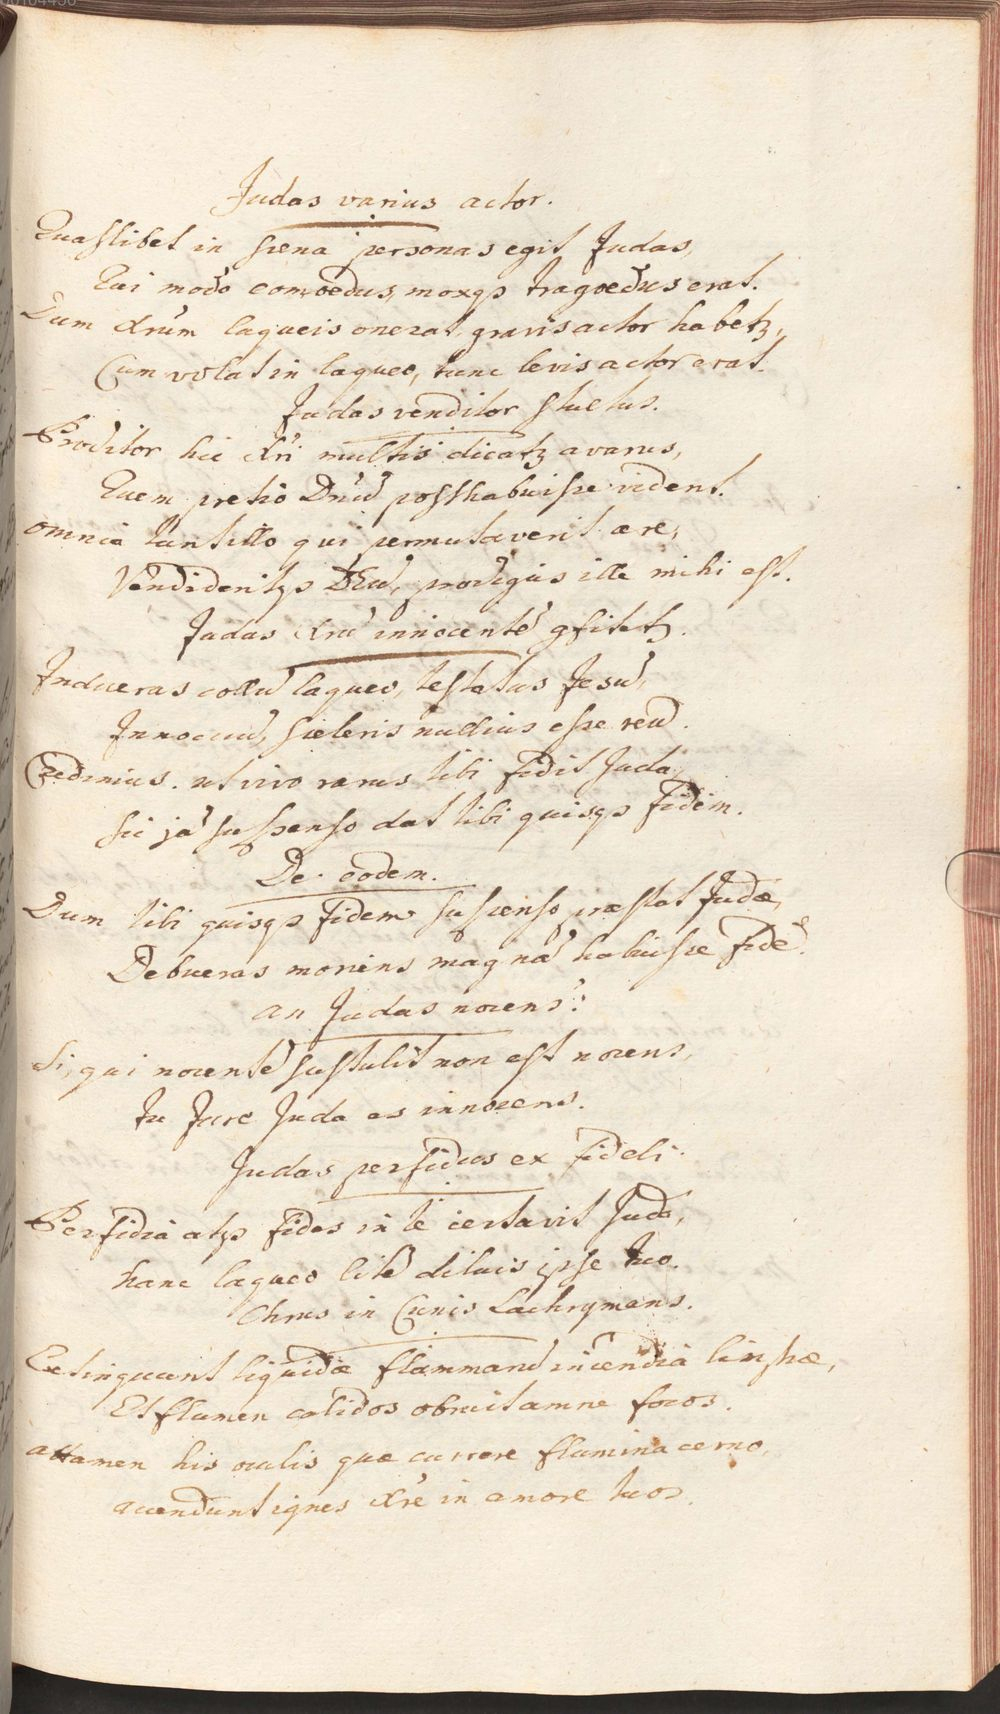 Judas varius actor.
Quaslibet in scena personas egit Judas,
Qui modo comoedus, moxqs tragoedus erat.
Dum Xrum laqueis onerat, gravis actor habetz,
Cum volat in laqueo, tunc levis actor erat.
Judas venditor stultus.
Proditor hic Xri multis dicatz avarus,
Quem pretio Dnū posthabuisse vident.
omnia tantillo qui permutaverit aere,
Vendideritqs DEū, prodigus ille mihi est.
Judas Xrū innocentē gfitetz.
Indueras collū laqueo, testatus Jesū,
Innocuū, sceleris nullius esse reū.
Credimus. ut vivo rarus tibi fidit Juda,
sic jā suspenso dat tibi quisqs fidem.
De eodem.
Dum tibi quisqs fidem suspenso praestat Judae,
Debueras moriens magnā habuisse fidē.
an Judas nocens?
Si, qui nocentē sustulit non est nocens,
tu Jure Juda es innocens.
Judas perfidus ex fideli.
Perfidia atqs fides in te certavit Juda,
hanc laqueo litē diluis ipse tuo.
Chrus in Cunis Lachrymans.
Extinguunt liquidae flammanū incendia limphae,
Et flumen calidos obruit amne focos.
attamen his oculis quae currere flumina cerno,
accendunt ignes Xre in amore tuos.